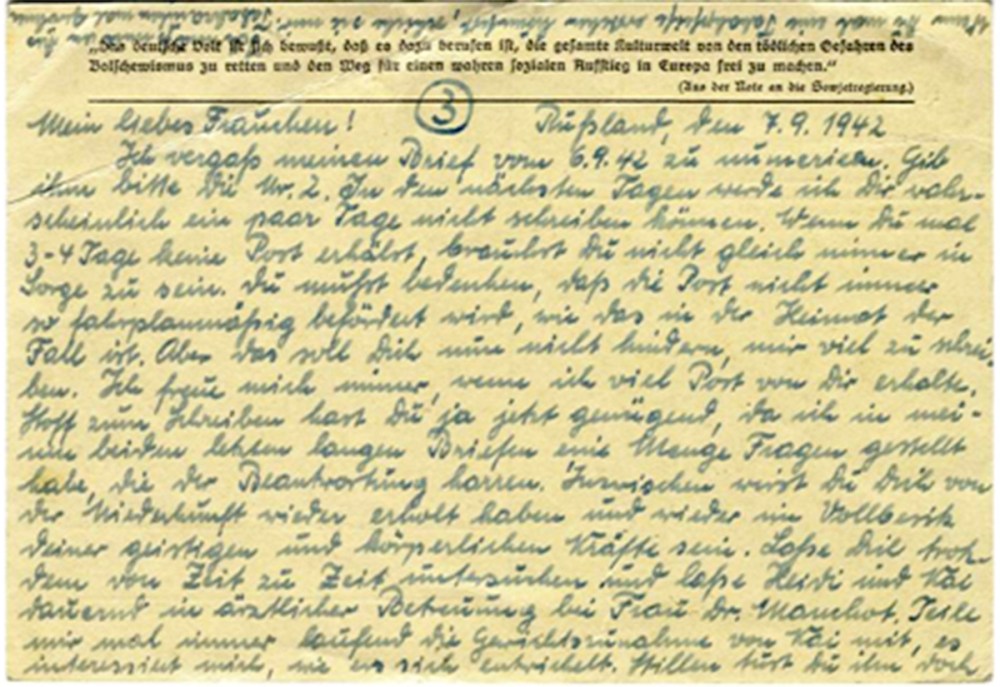 „Das deutsche Volk ist sich bewußt, daß es dazu berufen ist, die gesamte Kulturwelt von den tödlichen Gefahren des
Bolschewismus zu retten und den Weg für einen wahren sozialen Aufstieg in Europa frei zu machen.“
(Aus der Note an die Sowjetregierung.)
3
Mein liebes Frauchen! Rußland, den 7.9.1942
Ich vergaß meinen Brief vom 6.9.42 zu numerieren. Gib
ihm bitte die Nr. 2. In den nächsten Tagen werde ich Dir wahr-
scheinlich ein paar Tage nicht schreiben können. Wenn Du mal
3-4 Tage keine Post erhälst, brauchst Du nicht gleich immer in
Sorge zu sein. Du mußt bedenken, daß die Post nicht immer
so fahrplanmäßig befördert wird, wie das in der Heimat der
Fall ist. Aber das soll Dich nun nicht hindern, mir viel zu schrei-
ben. Ich freue mich immer, wenn ich viel Post von Dir erhalte.
Stoff zum Schreiben hast Du ja jetzt genügend, da ich in mei-
nen beiden letzten langen Briefen eine Menge Fragen gestellt
habe, die der Beantwortung harren. Inzwischen wirst Du Dich von
der Niederkunft wieder erholt haben und wieder im Vollbesitz
deiner geistigen und körperlichen Kräfte sein. Laße Dich trotz-
dem von Zeit zu Zeit untersuchen und laße Heidi und Kai
dauernd in ärztlicher Betreuung bei Frau Dr. Manchot. Teile
mir mal immer laufend die Gewichtszunahme von Kai mit, es
interessiert mich, wie er sich entwickelt. Stillen tust Du ihn doch